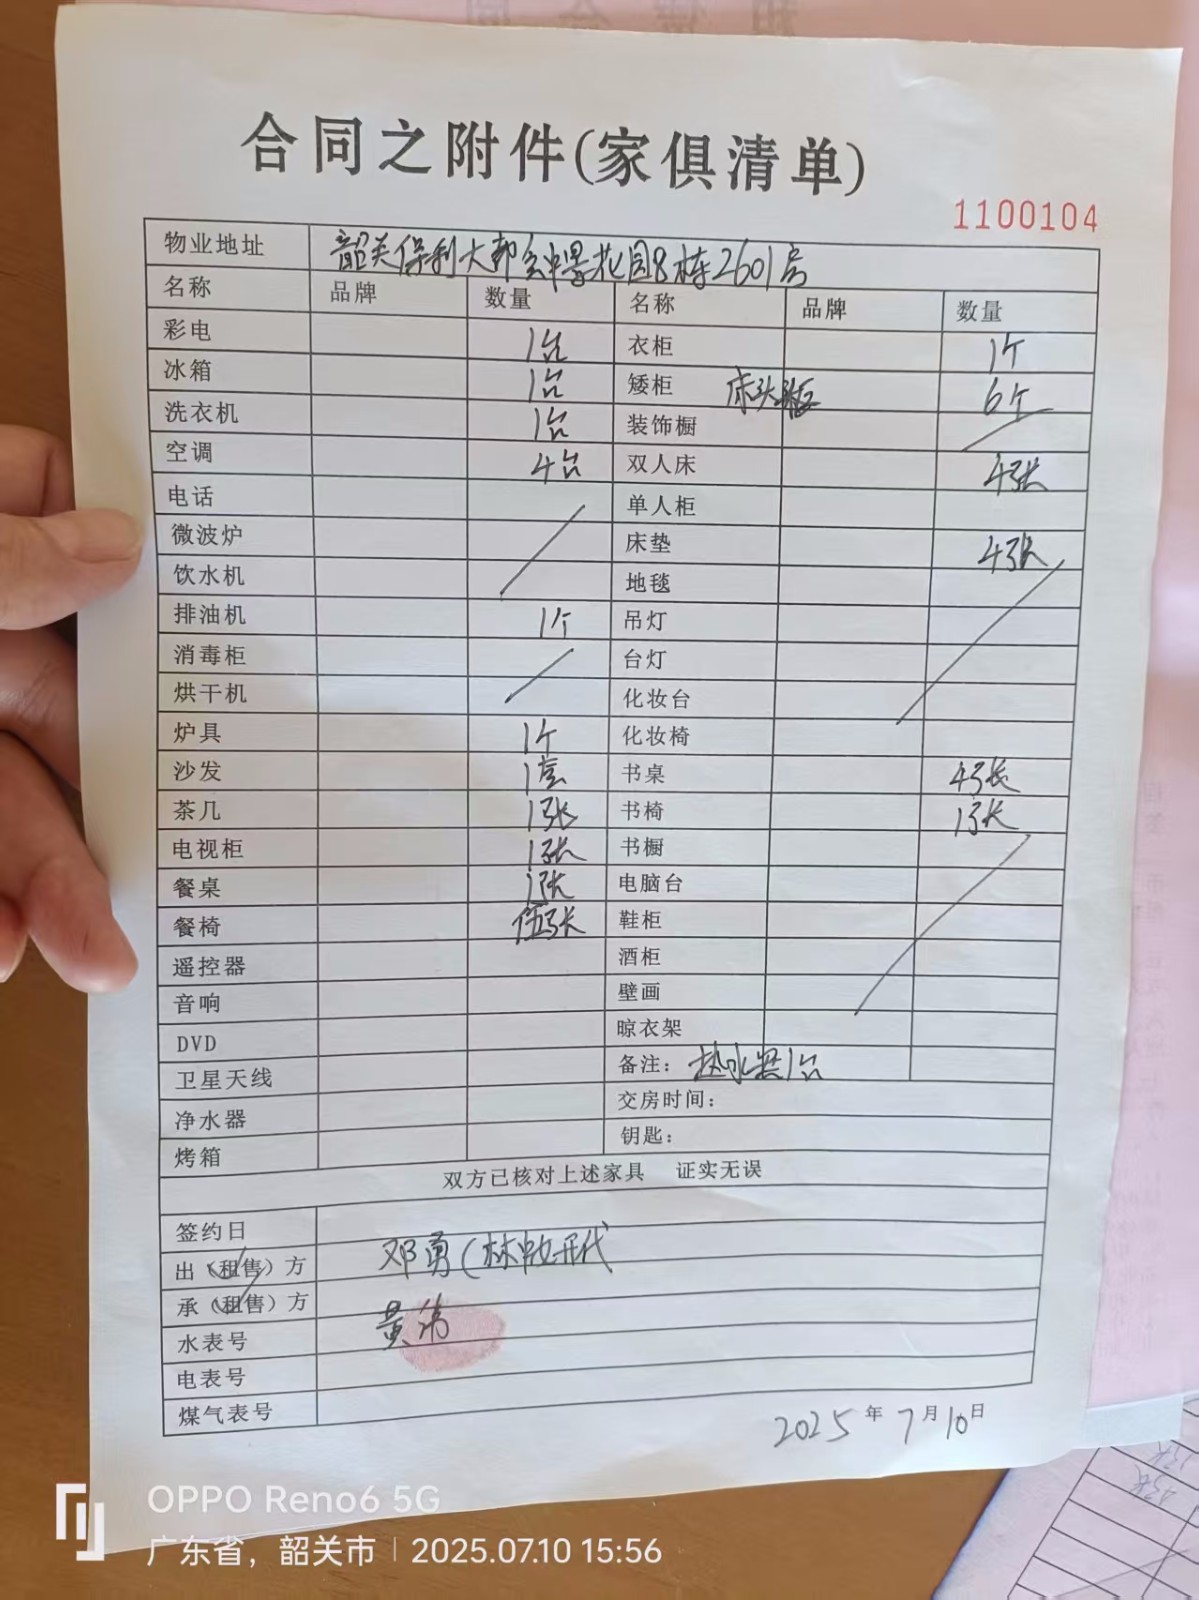 合同之附件(家俱清单)
1100104
物业地址 韶关保利大都会中景花园8栋2601房
名称 品牌 数量 名称 品牌 数量
彩电 1台 衣柜 1个
冰箱 1台 矮柜 床头柜 6个
洗衣机 1台 装饰橱
空调 4台 双人床 4张
电话 单人柜
微波炉 床垫 4张
饮水机 地毯
排油机 1个 吊灯
消毒柜 台灯
烘干机 化妆台
炉具 1个 化妆椅
沙发 1套 书桌 4张
茶几 1张 书椅 1张
电视柜 1张 书橱
餐桌 1张 电脑台
餐椅 伍张 鞋柜
遥控器 酒柜
音响 壁画
DVD 晾衣架
卫星天线 备注: 热水器1台
净水器 交房时间:
烤箱 钥匙:
双方已核对上述家具 证实无误
签约日
出(租售)方 邓勇(林 代
承(租售)方 黄
水表号
电表号
煤气表号
2025年7月10日
OPPO Reno6 5G
广东省，韶关市 | 2025.07.10 15:56